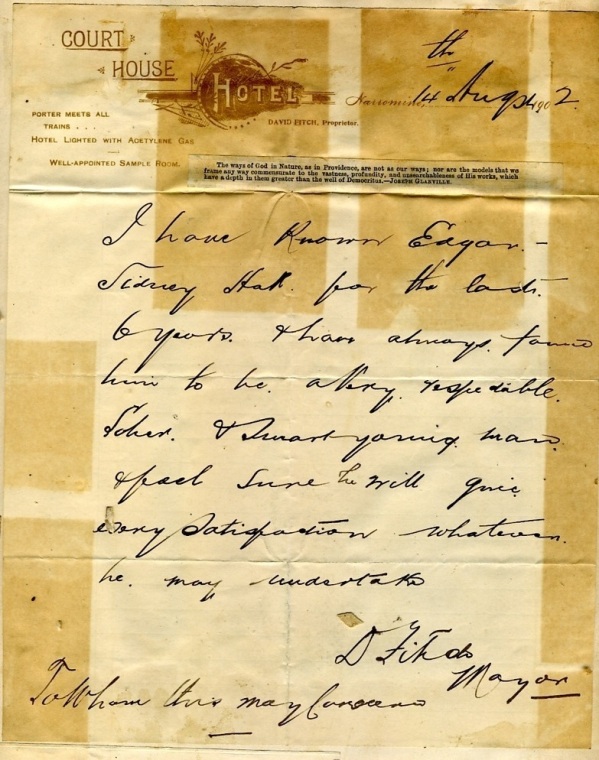 COURT
HOUSE
HOTEL
DAVID FITCH, Proprietor.
PORTER MEETS ALL
TRAINS . . . .
HOTEL LIGHTED WITH ACETYLENE GAS
WELL-APPOINTED SAMPLE ROOM.
Narromine, 14th Augst 1902.
The ways of God in Nature, as in Providence, are not as our ways; nor are the models that we
frame any way commensurate to the vastness, profundity, and unsearchableness of His works, which
have a depth in them greater than the well of Democritus.—JOSEPH GLANVILLE.
I have Known Edgar
Sidney for the last
6 years. & have always found
him to be. a Very. respectable.
Sober. & Smart young man.
& feel Sure he will give
every Satisfaction whatever.
he. may undertake
D Fitch
Mayor
To Whom this may Concern